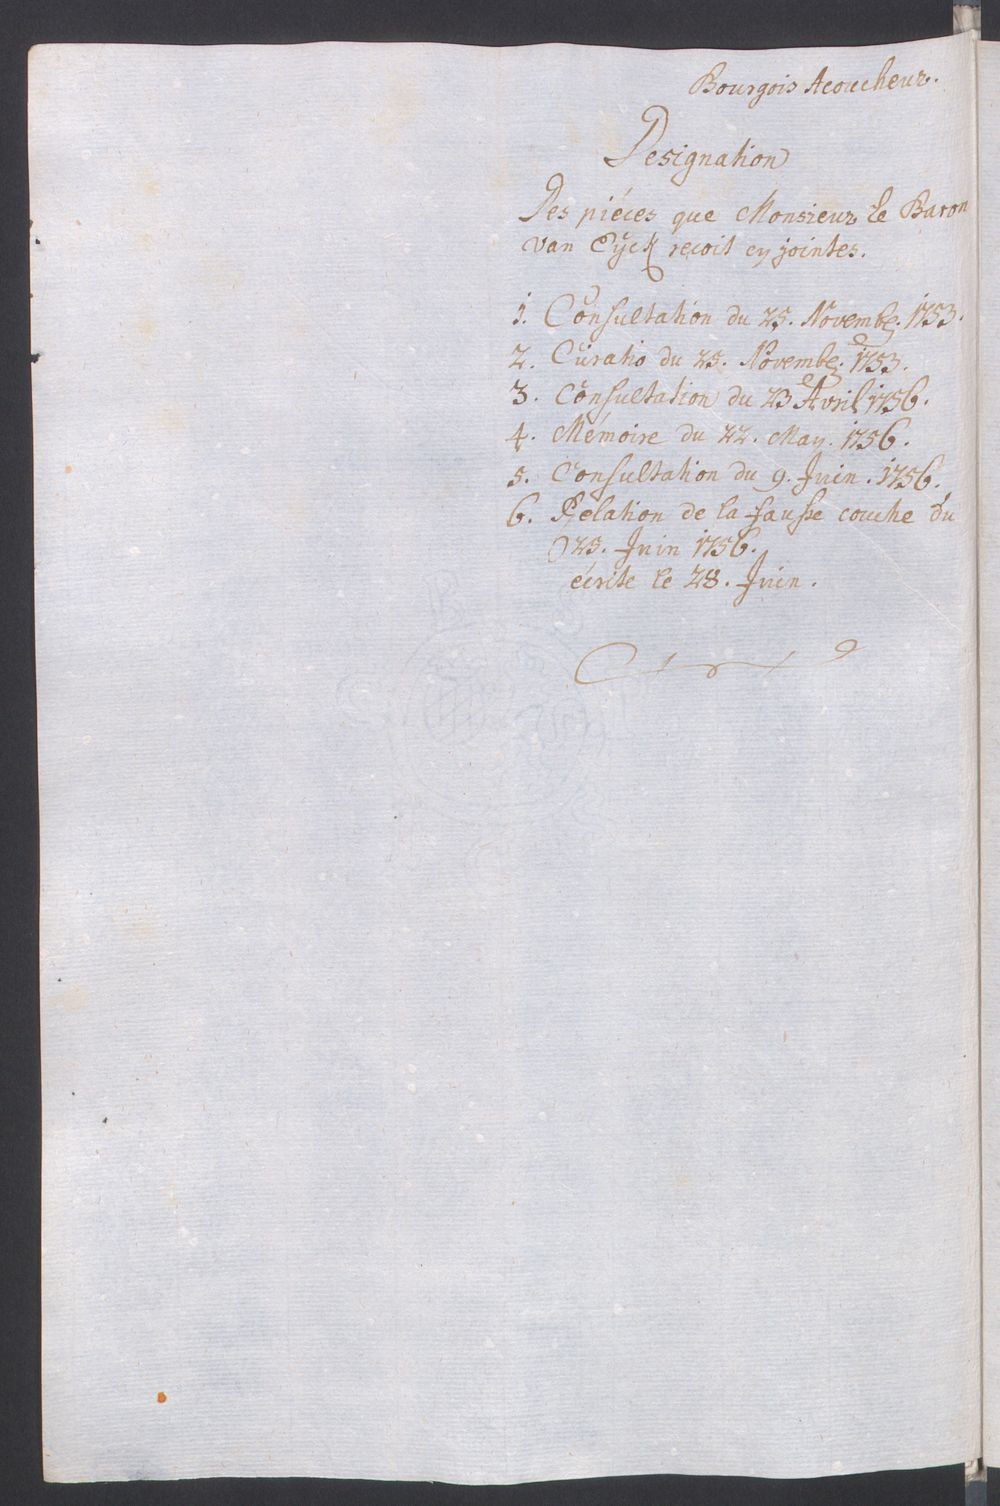 Bourgois Acoucheur.
Designation
Des piéces que Monsieur le Baron
van Eyck reçoit cy jointes.
1. Consultation du 25. Novembr. 1753.
2. Curatio du 25. Novembr. 1753.
3. Consultation du 23 Avril 1756.
4. Mémoire du 22. May. 1756.
5. Consultation du 9. Juin. 1756.
6. Relation de la fausse couche du
25. Juin 1756.
écrite le 28. Juin.